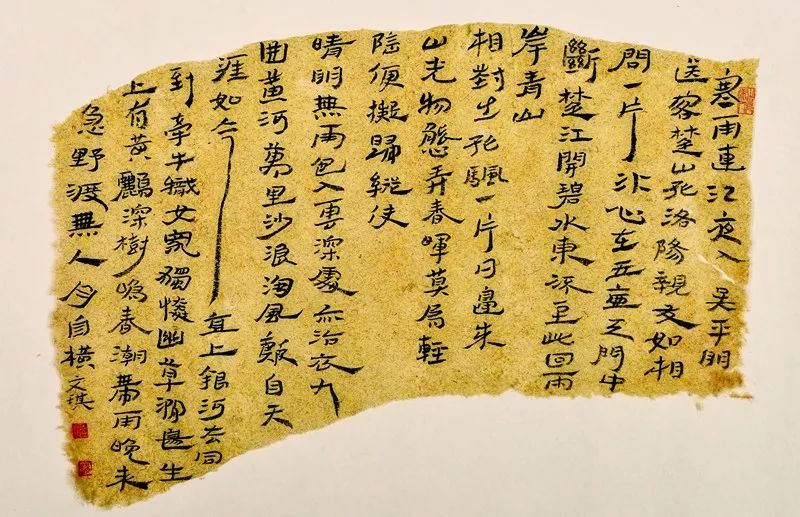 寒雨連江夜入吳平明
送客楚山孤洛陽親友如相
問一片冰心在玉壺天門中
斷楚江開碧水東流至此回兩
岸青山
相對出孤颿一片日邊來
山光物態弄春暉莫為輕
陰便擬歸縱使
晴明無雨色入雲深處亦沾衣九
曲黃河萬里沙浪淘風簸自天
涯如今直上銀河去同
到牽牛織女家獨憐幽草澗邊生
上有黃鸝深樹鳴春潮帶雨晚來
急野渡無人舟自橫 文琪